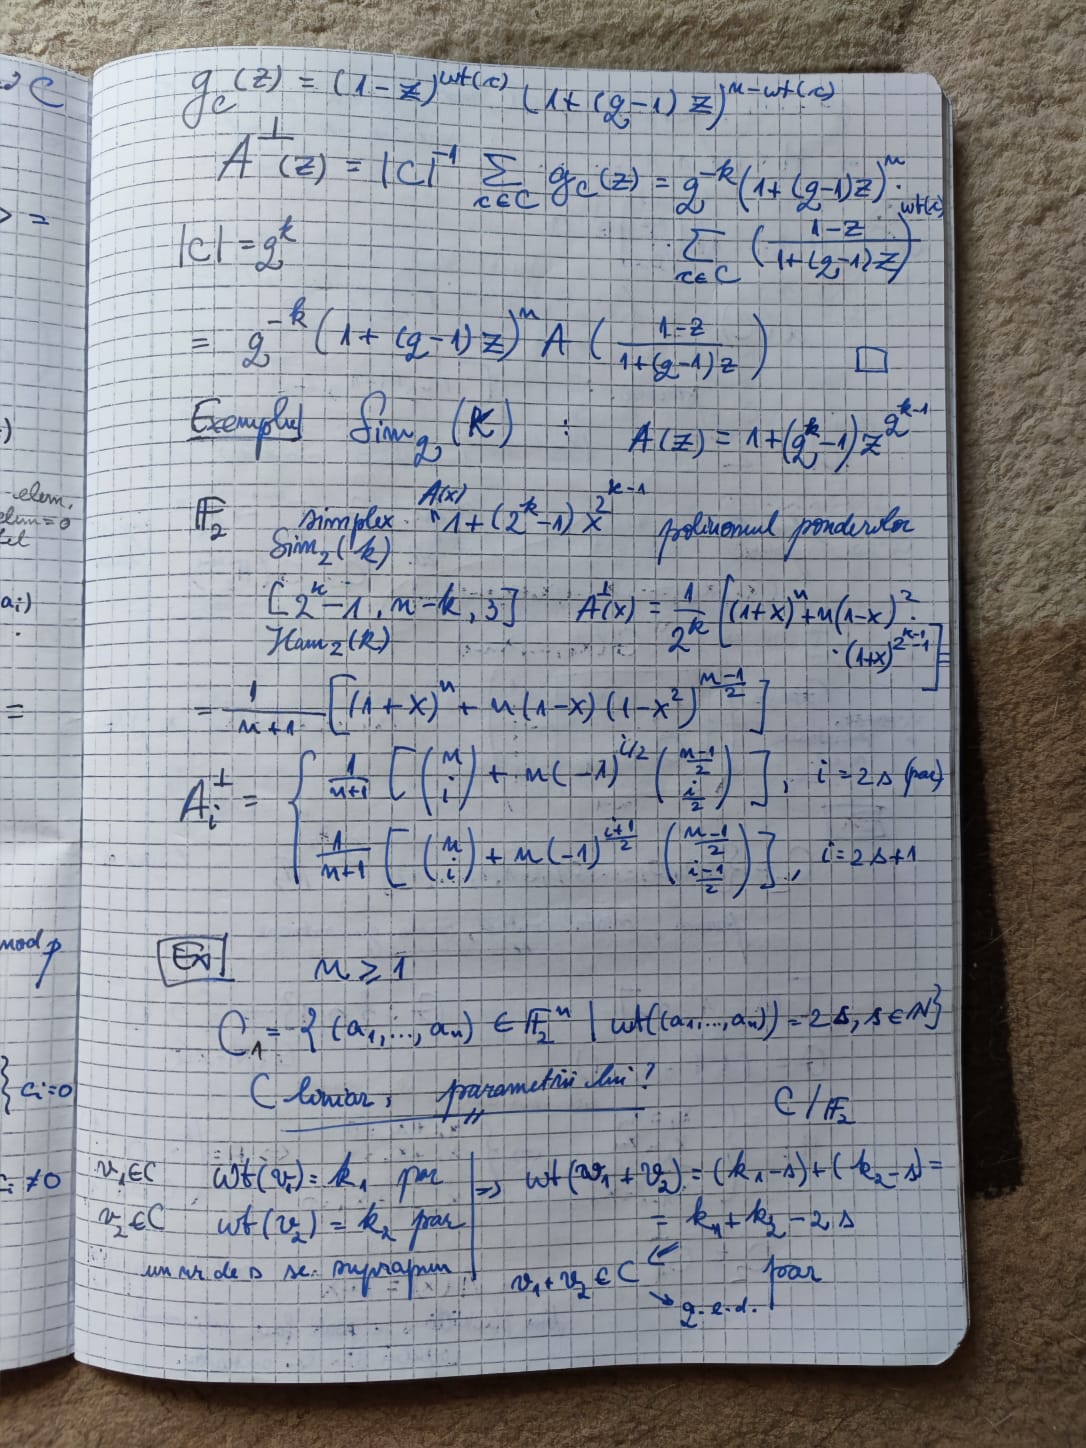 g_c(z) = (1-z)^{wt(c)} (1+(q-1)z)^{n-wt(c)}
A^⊥(z) = |C|^{-1} Σ_{c∈C} g_c(z) = q^{-k} (1+(q-1)z)^n ·
|C| = q^k
Σ_{c∈C} ((1-z)/(1+(q-1)z))^{wt(c)}
= q^{-k} (1+(q-1)z)^n A((1-z)/(1+(q-1)z)) □
Exemplu Sim_q(k) : A(z) = 1+(q^k-1) z^{q^{k-1}}
𝔽_2 simplex A(x) " 1+(2^k-1) x^{2^{k-1}} polinomul ponderilor
Sim_2(k)
[2^k-1, n-k, 3] A^⊥(x) = 1/2^k [(1+x)^n + n(1-x)^2 ·
Ham_2(k) · (1+x)^{2^{k-1}-1}] =
= 1/(n+1) [(1+x)^n + n(1-x)(1-x^2)^{(n-1)/2}]
A_i^⊥ = { 1/(n+1) [(n i) + n(-1)^{i/2} ((n-1)/2 i/2)], i=2s (par)
1/(n+1) [(n i) + n(-1)^{(i+1)/2} ((n-1)/2 (i-1)/2)], i=2s+1
Ex n ≥ 1
C_1 = {(a_1,...,a_n) ∈ 𝔽_2^n | wt((a_1,...,a_n)) = 2s, s∈N}
C liniar, parametrii lui? C/𝔽_2
v_1∈C wt(v_1) = k_1 par | => wt(v_1+v_2) = (k_1-s)+(k_2-s) =
v_2∈C wt(v_2) = k_2 par = k_1+k_2-2s
un nr de s se suprapun v_1+v_2 ∈ C par
q.e.d.
C
> =
)
elem.
=0
a_i)
=
mod p
} c_i=0
≠0